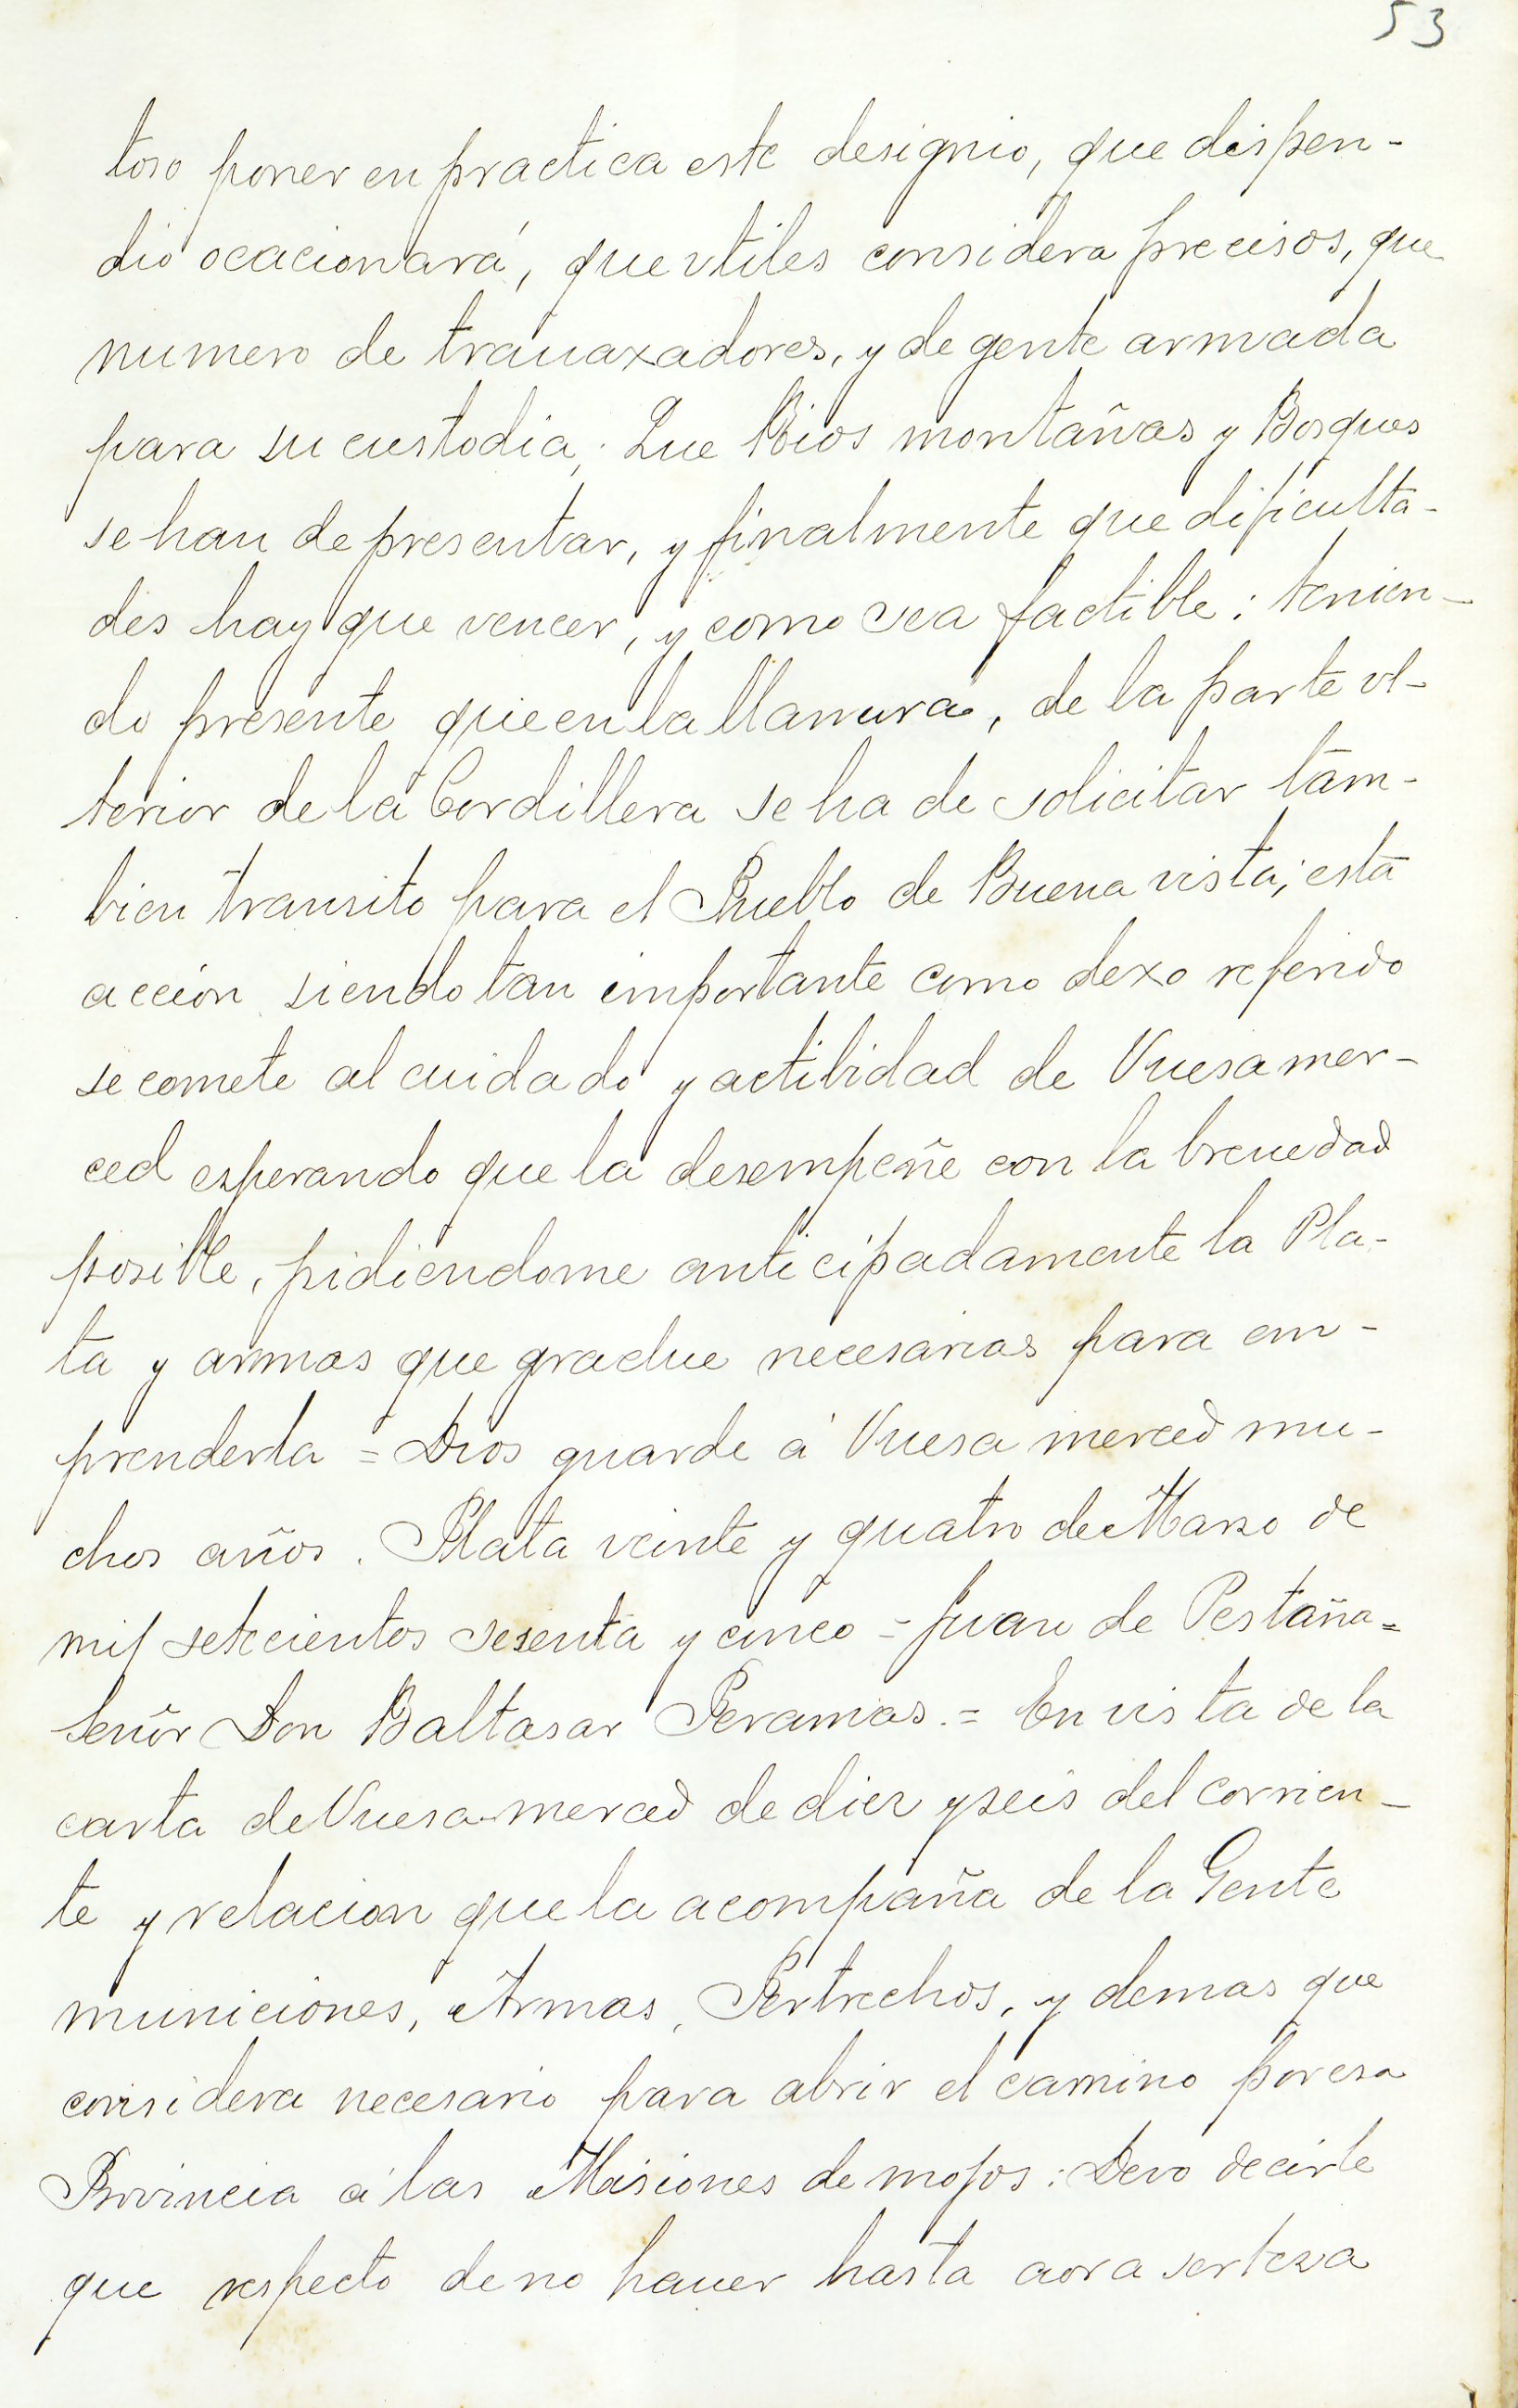 53
toso poner en practica este designio, que dispen-
dio ocacionará, que vtiles considera precisos, que
numero de trauaxadores, y de gente armada
para su custodia; Que Rios montañas y Bosques
se han de presentar, y finalmente que dificulta-
des hay que vencer, y como sea factible: tenien-
do presente que en la llanura, de la parte vl-
terior de la Cordillera se ha de solicitar tam-
bien transito para el Pueblo de Buena vista; esta
accion siendo tan importante como dexo referido
se comete al cuidado y actibidad de Vuesa mer-
ced esperando que la desempeñe con la breuedad
posible, pidiendome anticipadamente la Pla-
ta y armas que gradue necesarias para em-
prenderla = Dios guarde á Vuesa merced mu-
chos años. Plata veinte y quatro de Marzo de
mil setecientos sesenta y cinco = Juan de Pestaña =
Señor Don Baltasar Peramas. = En vista de la
carta de Vuesa merced de diez y seis del corrien-
te y relacion que la acompaña de la Gente
municiones, Armas, Pertrechos, y demas que
considera necesario para abrir el camino por esa
Provincia á las Misiones de mojos: Devo decirle
que respecto de no hauer hasta aora serteza